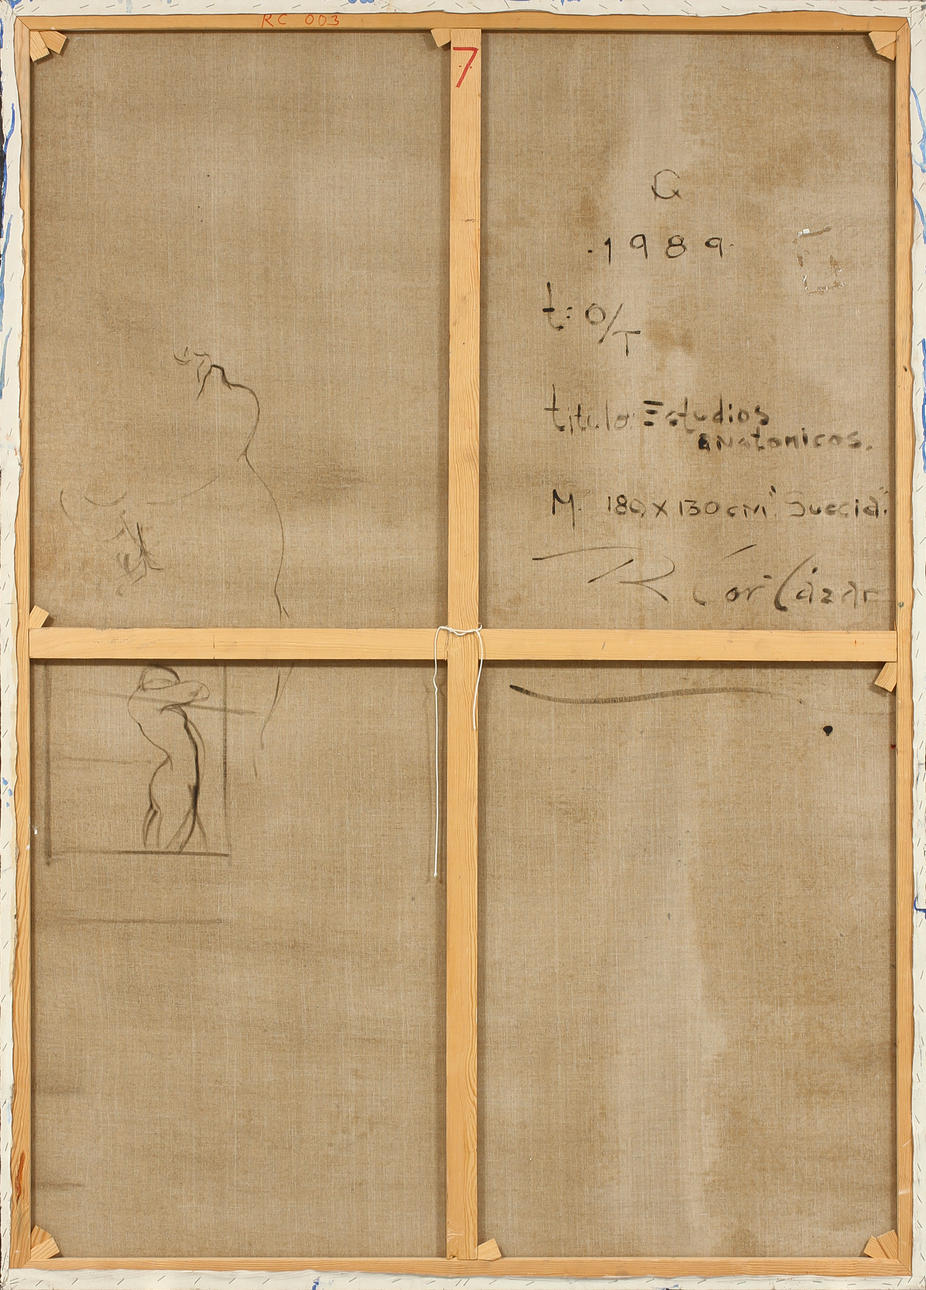 RC 003
7
G
.1989.
t: O/T
titulo: Estudios
anatomicos.
M. 180x130cm. "Suecia".
R Cor Cázar